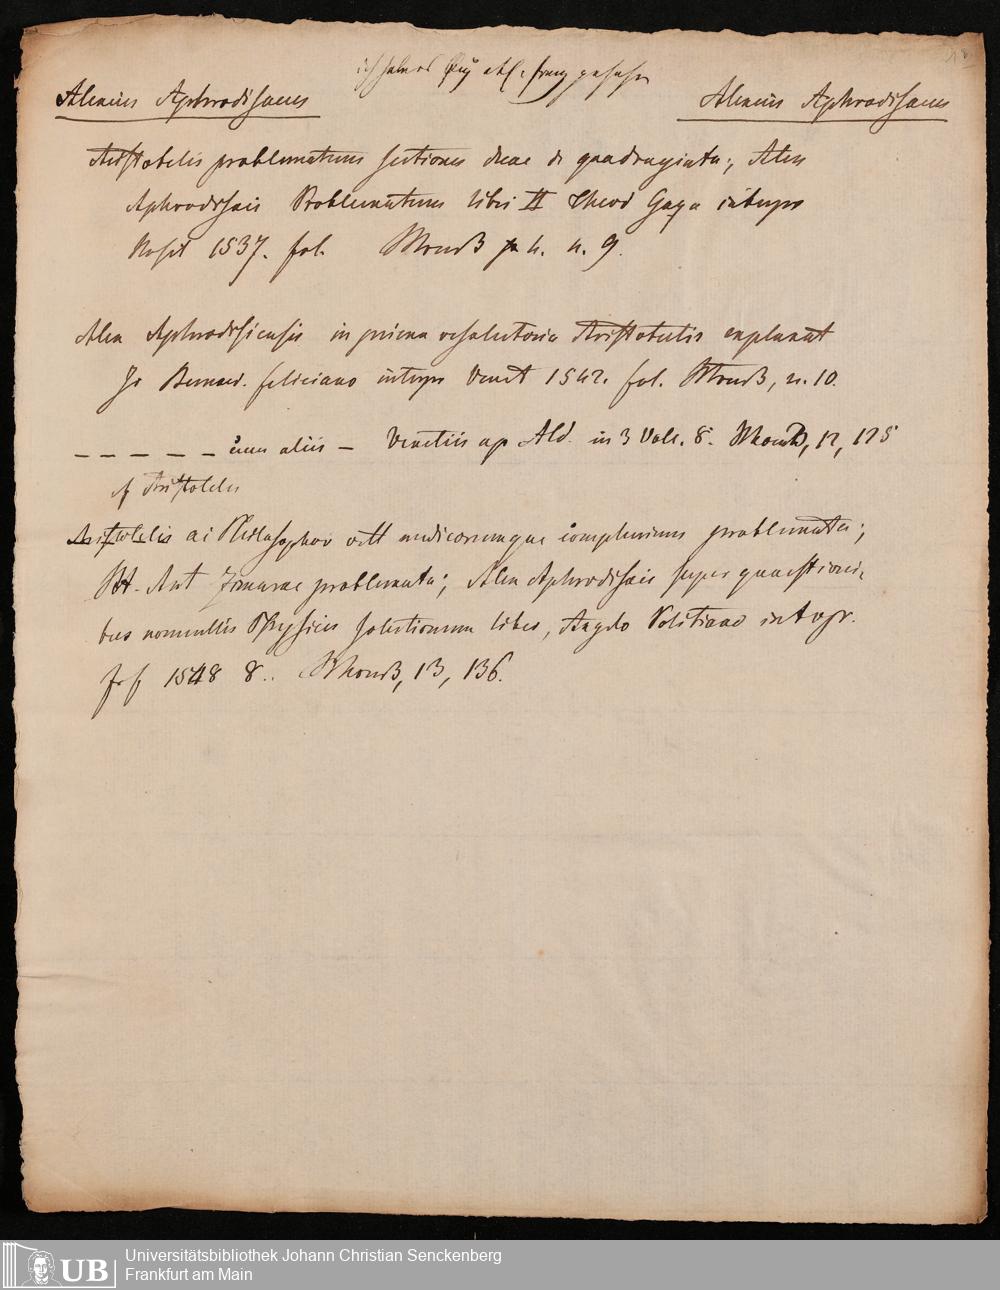 ich habe es
Alexius Aphrodisaeus Alexius Aphrodisaeus
Aristotelis problematum sectiones duae de quadraginta; Alex
Aphrodisaei Problematum libri II Theod Gaza interpr
Basil 1537. fol. n. 9.
Alex Aphrodisiensis in priora resolutoria Aristotelis explanat
Jo Bernard. feliciano interpr Venet 1542. fol. n. 10.
_ _ _ _ _ cum aliis – Venetiis ap Ald. in 3 Voll. 8. 12, 125
cf Aristoteles
Aristotelis ac Philosophor vett medicorumque complurium problemata;
M. Ant Zimarae problemata; Alex Aphrodisaei super quaestioni-
bus nonnullis Physicis solutionum liber, Angelo Politiano interpr.
Frf 1548 8. 13, 136.
UB Universitätsbibliothek Johann Christian Senckenberg
Frankfurt am Main